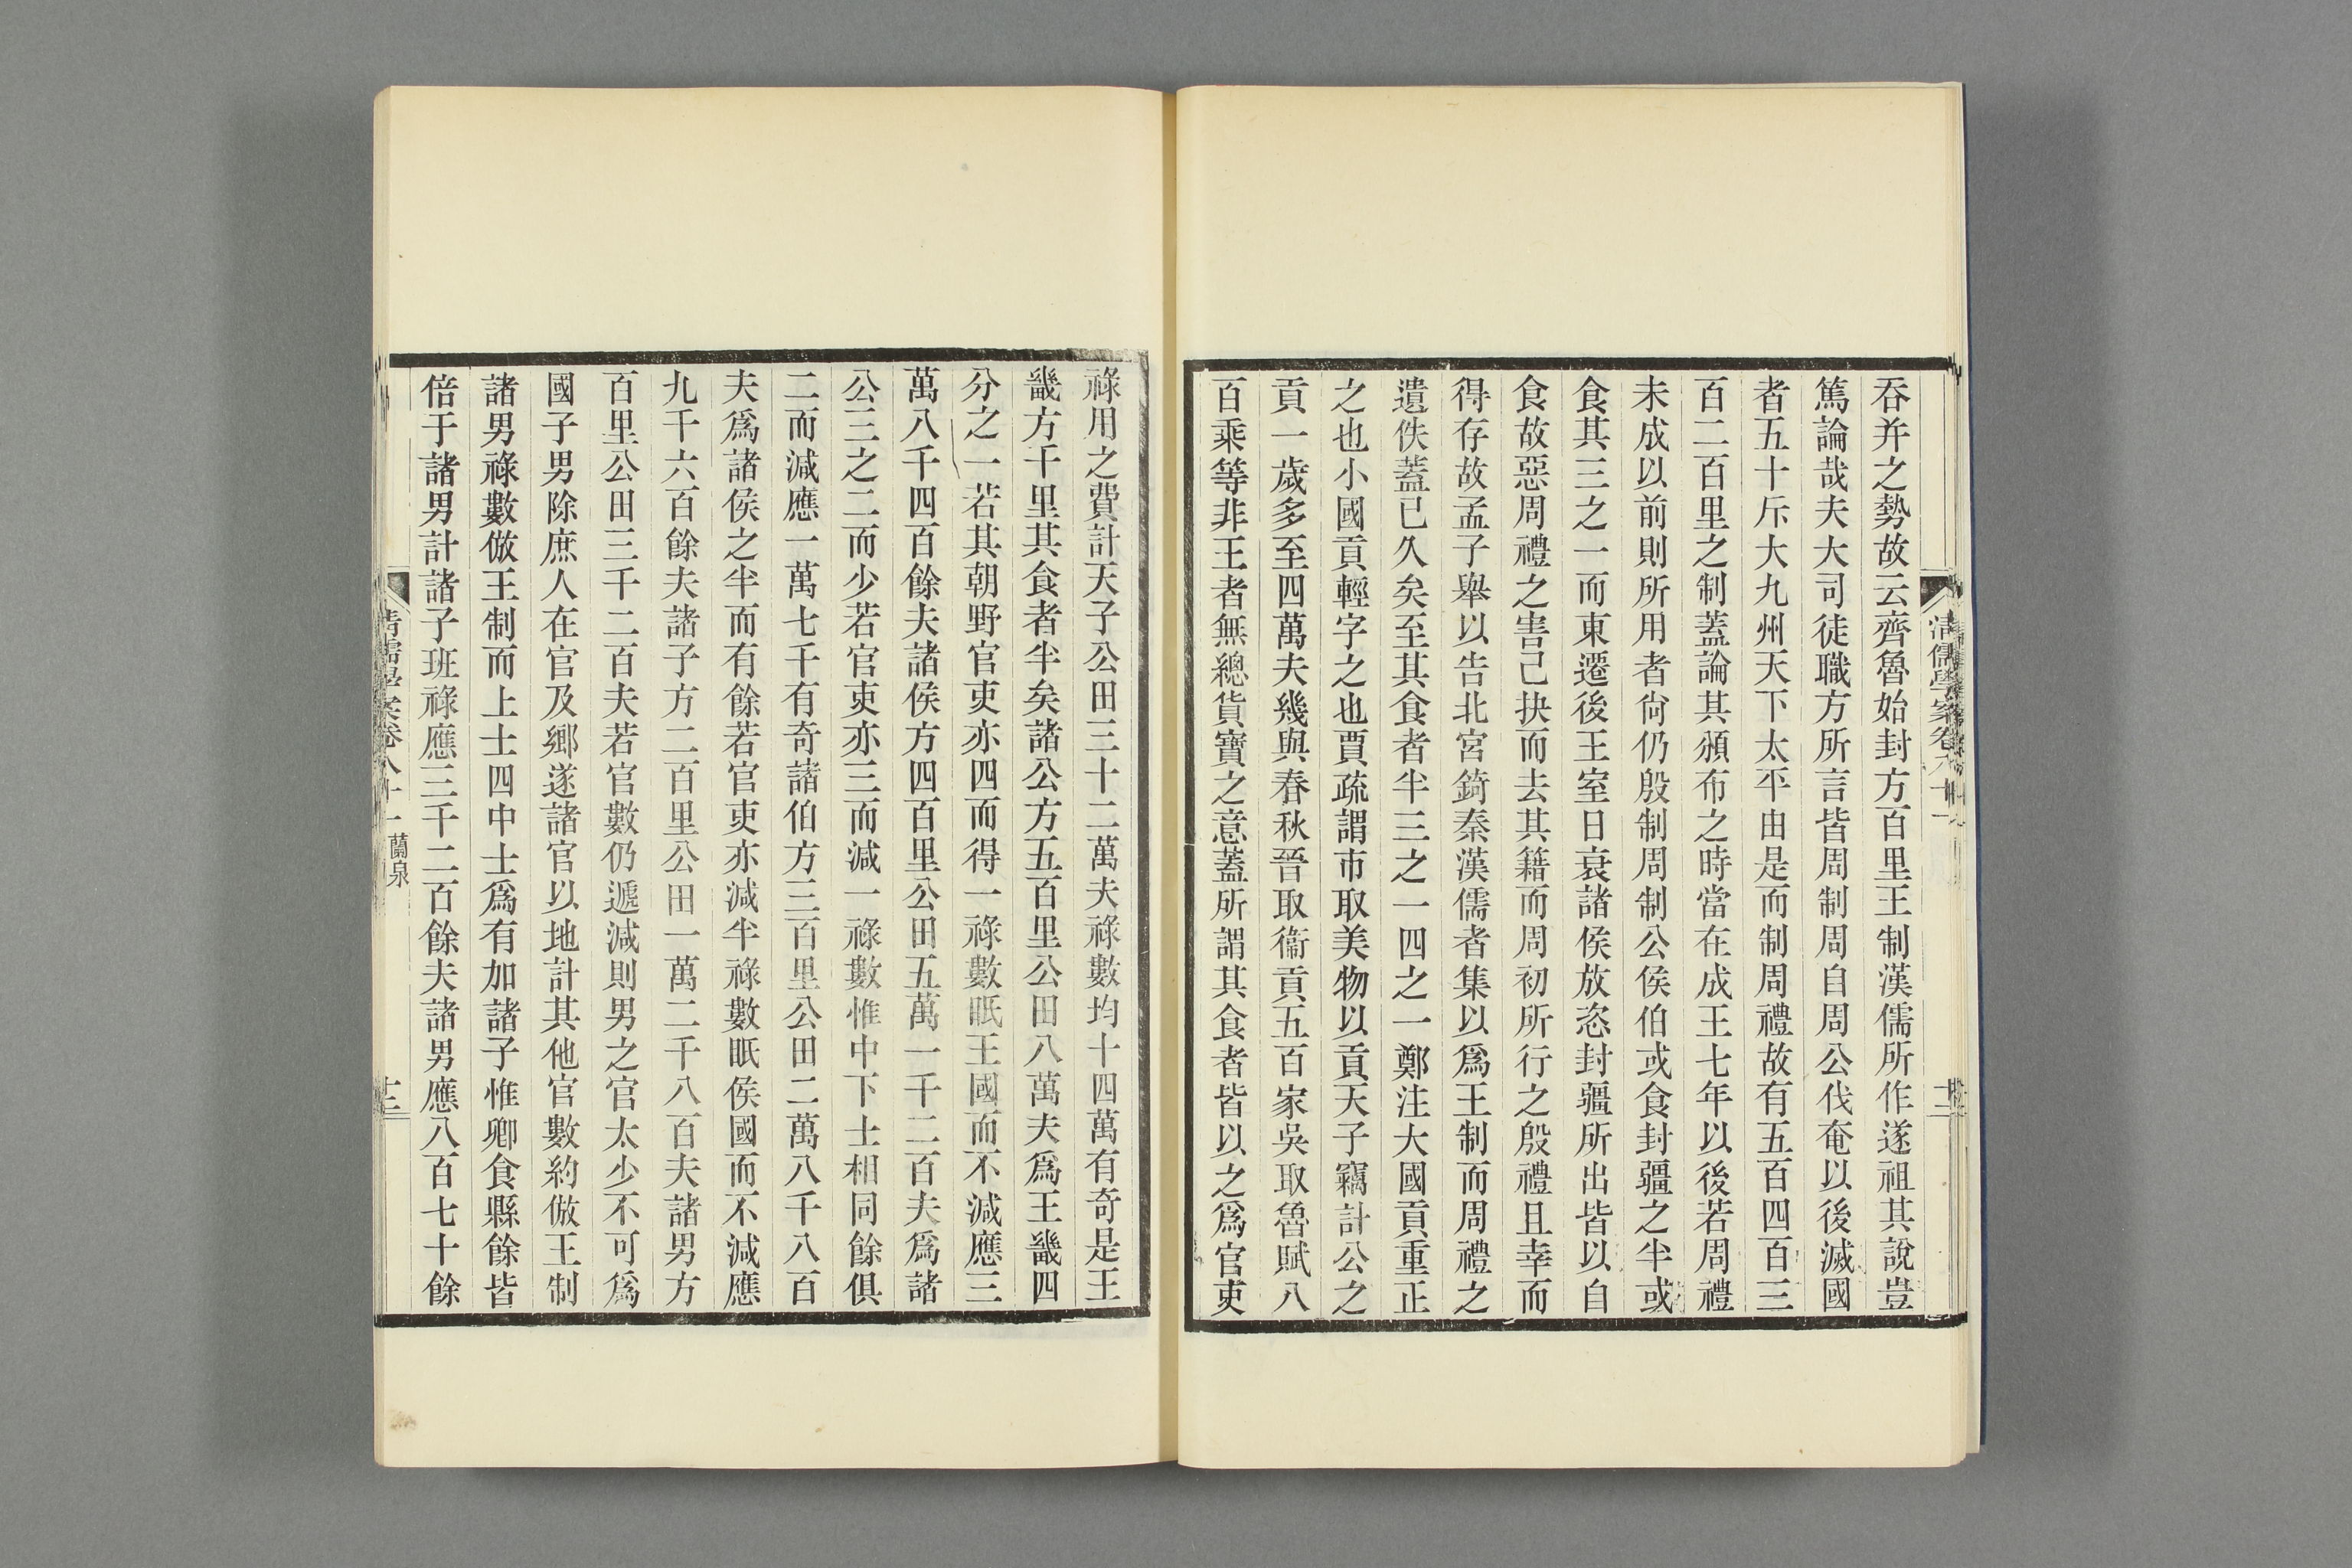 吞并之勢故云齊魯始封方百里王制漢儒所作遂祖其說豈
篤論哉夫大司徒職方所言皆周制周自周公伐奄以後滅國
者五十斥大九州天下太平由是而制周禮故有五百四百三
百二百里之制蓋論其頒布之時當在成王七年以後若周禮
未成以前則所用者尙仍殷制周制公侯伯或食封疆之半或
食其三之一而東遷後王室日衰諸侯放恣封疆所出皆以自
食故惡周禮之害己抉而去其籍而周初所行之殷禮且幸而
得存故孟子舉以告北宮錡秦漢儒者集以爲王制而周禮之
遺佚蓋已久矣至其食者半三之一四之一鄭注大國貢重正
之也小國貢輕字之也賈疏謂市取美物以貢天子竊計公之
貢一歲多至四萬夫幾與春秋晉取衞貢五百家吳取魯賦八
百乘等非王者無總貨寶之意蓋所謂其食者皆以之爲官吏
祿用之費計天子公田三十二萬夫祿數均十四萬有奇是王
畿方千里其食者半矣諸公方五百里公田八萬夫爲王畿四
分之一若其朝野官吏亦四而得一祿數眂王國而不減應三
萬八千四百餘夫諸侯方四百里公田五萬一千二百夫爲諸
公三之二而少若官吏亦三而減一祿數惟中下士相同餘俱
二而減應一萬七千有奇諸伯方三百里公田二萬八千八百
夫爲諸侯之半而有餘若官吏亦減半祿數眂侯國而不減應
九千六百餘夫諸子方二百里公田一萬二千八百夫諸男方
百里公田三千二百夫若官數仍遞減則男之官太少不可爲
國子男除庶人在官及鄉遂諸官以地計其他官數約倣王制
諸男祿數倣王制而上士四中士爲有加諸子惟卿食縣餘皆
倍于諸男計諸子班祿應三千二百餘夫諸男應八百七十餘
清儒學案卷八十一 蘭泉
十三